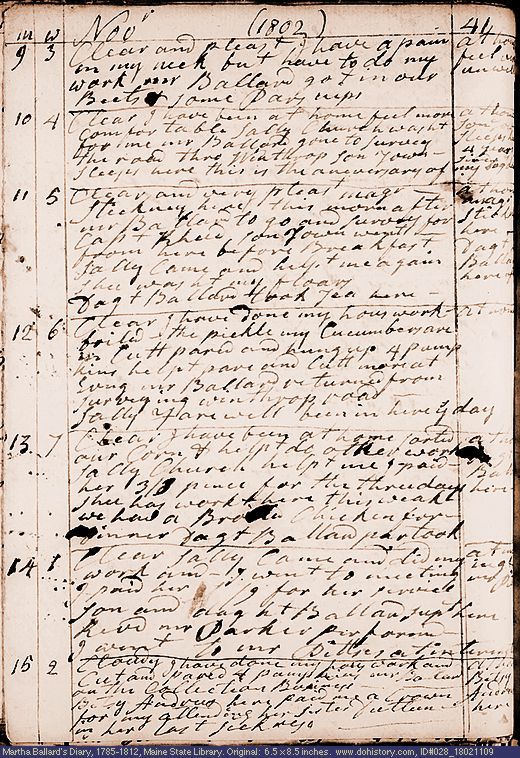 m w Novr (1802) 44
9 3 Clear and pleast I have a pain at home
in my neck but have to do my feel
work mr Ballard got in our unwell
Beets & some Parsnips
10 4 Clear I have been at home feel more at home
comfortable Sally Church washt
for me mr Ballard gone to survey
the road thro Winthrop son Town
sleeps here this is the aneversary of
11 5 Clear and very pleast magr at home
Stickney here this mom after
mr Ballard to go and survey for
Capt son Town went
from here before Breakfast
Sally Came and helpt me again
shee washt my floors
Dagt Ballard took tea here
12 6 Clear I have done my hous work at home
boild the pickle my Cucumbers are
in Cutt pared and hung up 4 pump
kins helpt pare and Cutt more at
Evng mr Ballard returned from
surveying winthrop road
Sally Farewell been in here ys day
13 7 Clear I have been at home sorted
our Corn & helpt do other work
Sally Church helpt me I paid
her 3/3 pence for the three days
shee has workt here this weak
we had a Chicken for
Dinner Dagt Ballard partook
14 1 Clear Sally Came and did my
work and I went to meeting
I paid her for her service
son and daught Ballard supt here
Revd mr Parker performd
I went to mr
15 2 Cloudy I have done my hous work and
Cut and pared 4 pumpkins mr
on the Collection
Betsy Andros here paid me a Crown
for my attending her sister
in her last sickness
Martha Ballard's Diary, 1785-1812, Maine State Library. Original: 6.5 x 8.5 inches. www.dohistory.com, ID#028_18021109